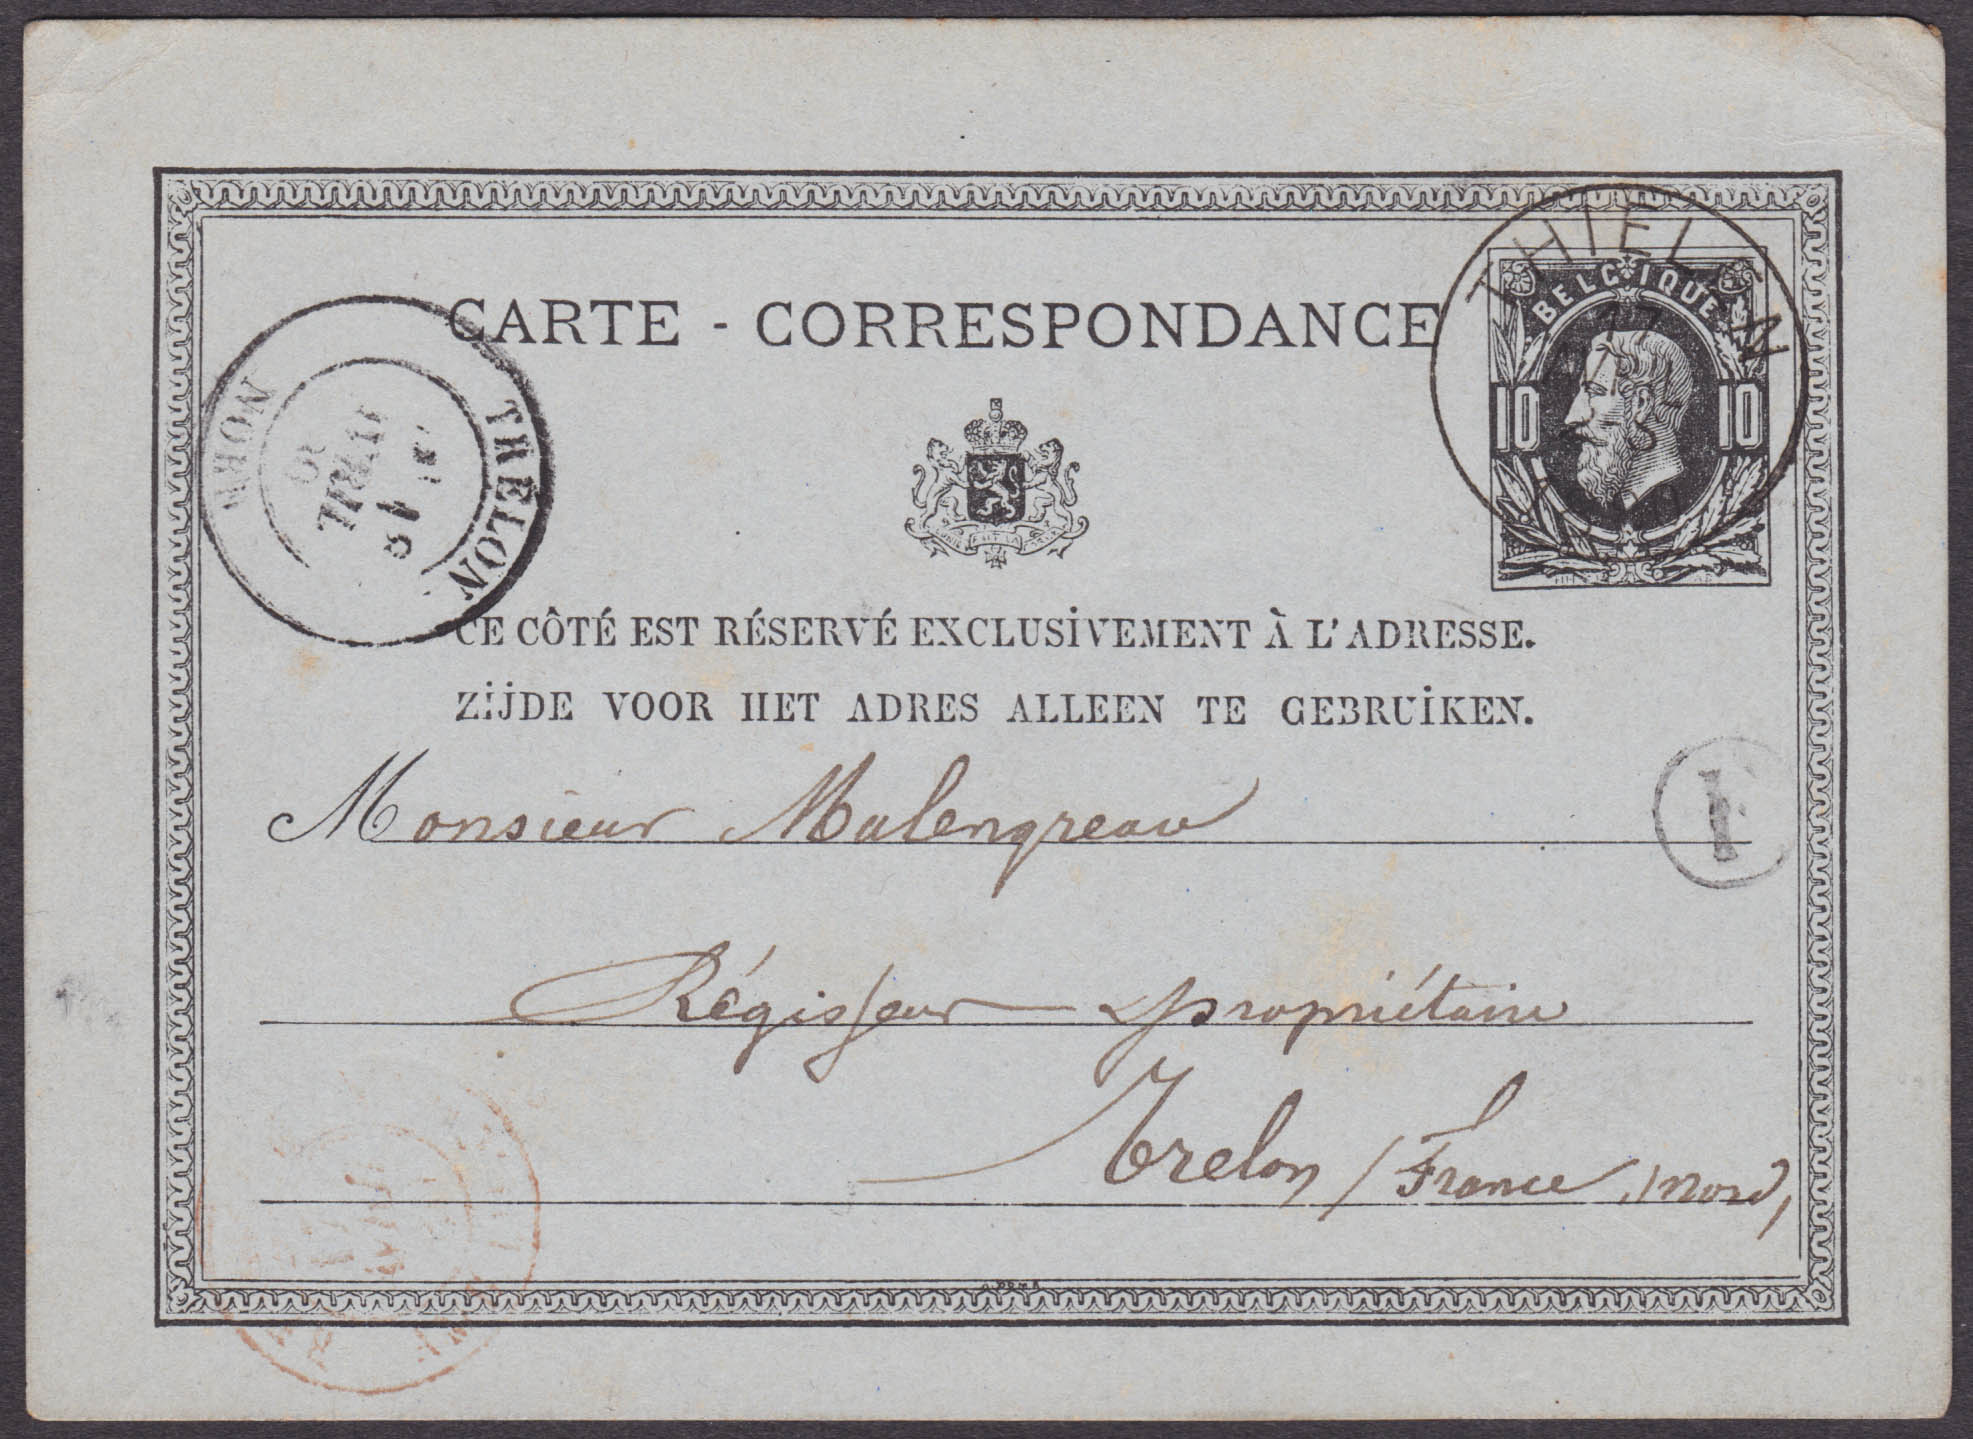 CARTE - CORRESPONDANCE
BELGIQUE
10 10
THIELEN
17
TRÉLON
AVRIL
NORD
CE CÔTÉ EST RÉSERVÉ EXCLUSIVEMENT À L'ADRESSE.
ZIJDE VOOR HET ADRES ALLEEN TE GEBRUIKEN.
Monsieur Malengreau
Régisseur propriétaire
Trelon / France, Nord,